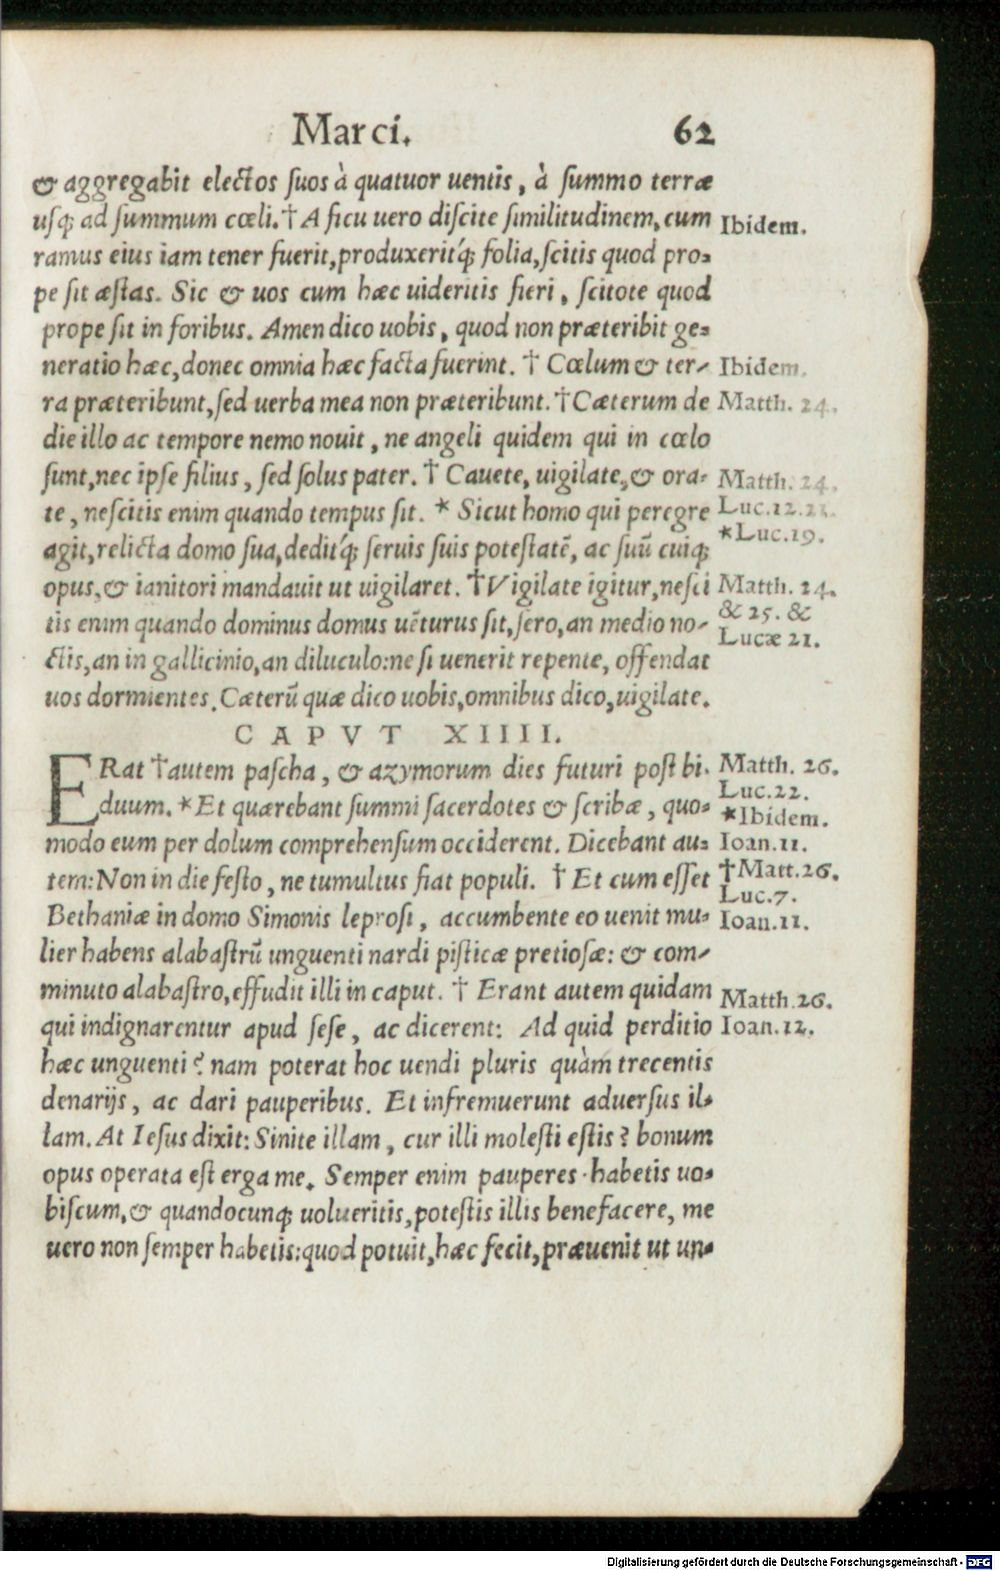 Marci. 62
& aggregabit electos ſuos à quatuor uentis, à ſummo terræ
uſq́; ad ſummum cœli. † A ficu uero diſcite ſimilitudinem, cum Ibidem.
ramus eius iam tener fuerit, produxeritq́; folia, ſcitis quod pro-
pe ſit æſtas. Sic & uos cum hæc uideritis fieri, ſcitote quod
prope ſit in foribus. Amen dico uobis, quod non præteribit ge-
neratio hæc, donec omnia hæc facta fuerint. † Cœlum & ter- Ibidem.
ra præteribunt, ſed uerba mea non præteribunt. † Cæterum de Matth. 24.
die illo ac tempore nemo nouit, ne angeli quidem qui in cœlo
ſunt, nec ipſe filius, ſed ſolus pater. † Cauete, uigilate, & ora- Matth. 24.
te, neſcitis enim quando tempus ſit. * Sicut homo qui peregre Luc.12.21.
agit, relicta domo ſua, deditq́; ſeruis ſuis poteſtatē, ac ſuū cuiq; *Luc.19.
opus, & ianitori mandauit ut uigilaret. † Vigilate igitur, neſci Matth. 24.
tis enim quando dominus domus uēturus ſit, ſero, an medio no- & 25. &
ctis, an in gallicinio, an diluculo: ne ſi uenerit repente, offendat Lucæ 21.
uos dormientes. Cæterū quæ dico uobis, omnibus dico, uigilate.
CAPVT XIIII.
ERat † autem paſcha, & azymorum dies futuri poſt bi- Matth. 26.
duum. * Et quærebant ſummi ſacerdotes & ſcribæ, quo- Luc.22.
*Ibidem.
modo eum per dolum comprehenſum occiderent. Dicebant au- Ioan.11.
tem: Non in die feſto, ne tumultus fiat populi. † Et cum eſſet †Matt.26.
Luc.7.
Bethaniæ in domo Simonis leproſi, accumbente eo uenit mu- Ioan.11.
lier habens alabaſtrū unguenti nardi piſticæ pretioſæ: & com-
minuto alabaſtro, effudit illi in caput. † Erant autem quidam Matth.26.
qui indignarentur apud ſeſe, ac dicerent: Ad quid perditio Ioan.12.
hæc unguenti? nam poterat hoc uendi pluris quàm trecentis
denarijs, ac dari pauperibus. Et infremuerunt aduerſus il-
lam. At Ieſus dixit: Sinite illam, cur illi moleſti eſtis? bonum
opus operata eſt erga me. Semper enim pauperes habetis uo-
biſcum, & quandocunq; uolueritis, poteſtis illis benefacere, me
uero non ſemper habetis: quod potuit, hæc fecit, præuenit ut un-
Digitalisierung gefördert durch die Deutsche Forschungsgemeinschaft - DFG